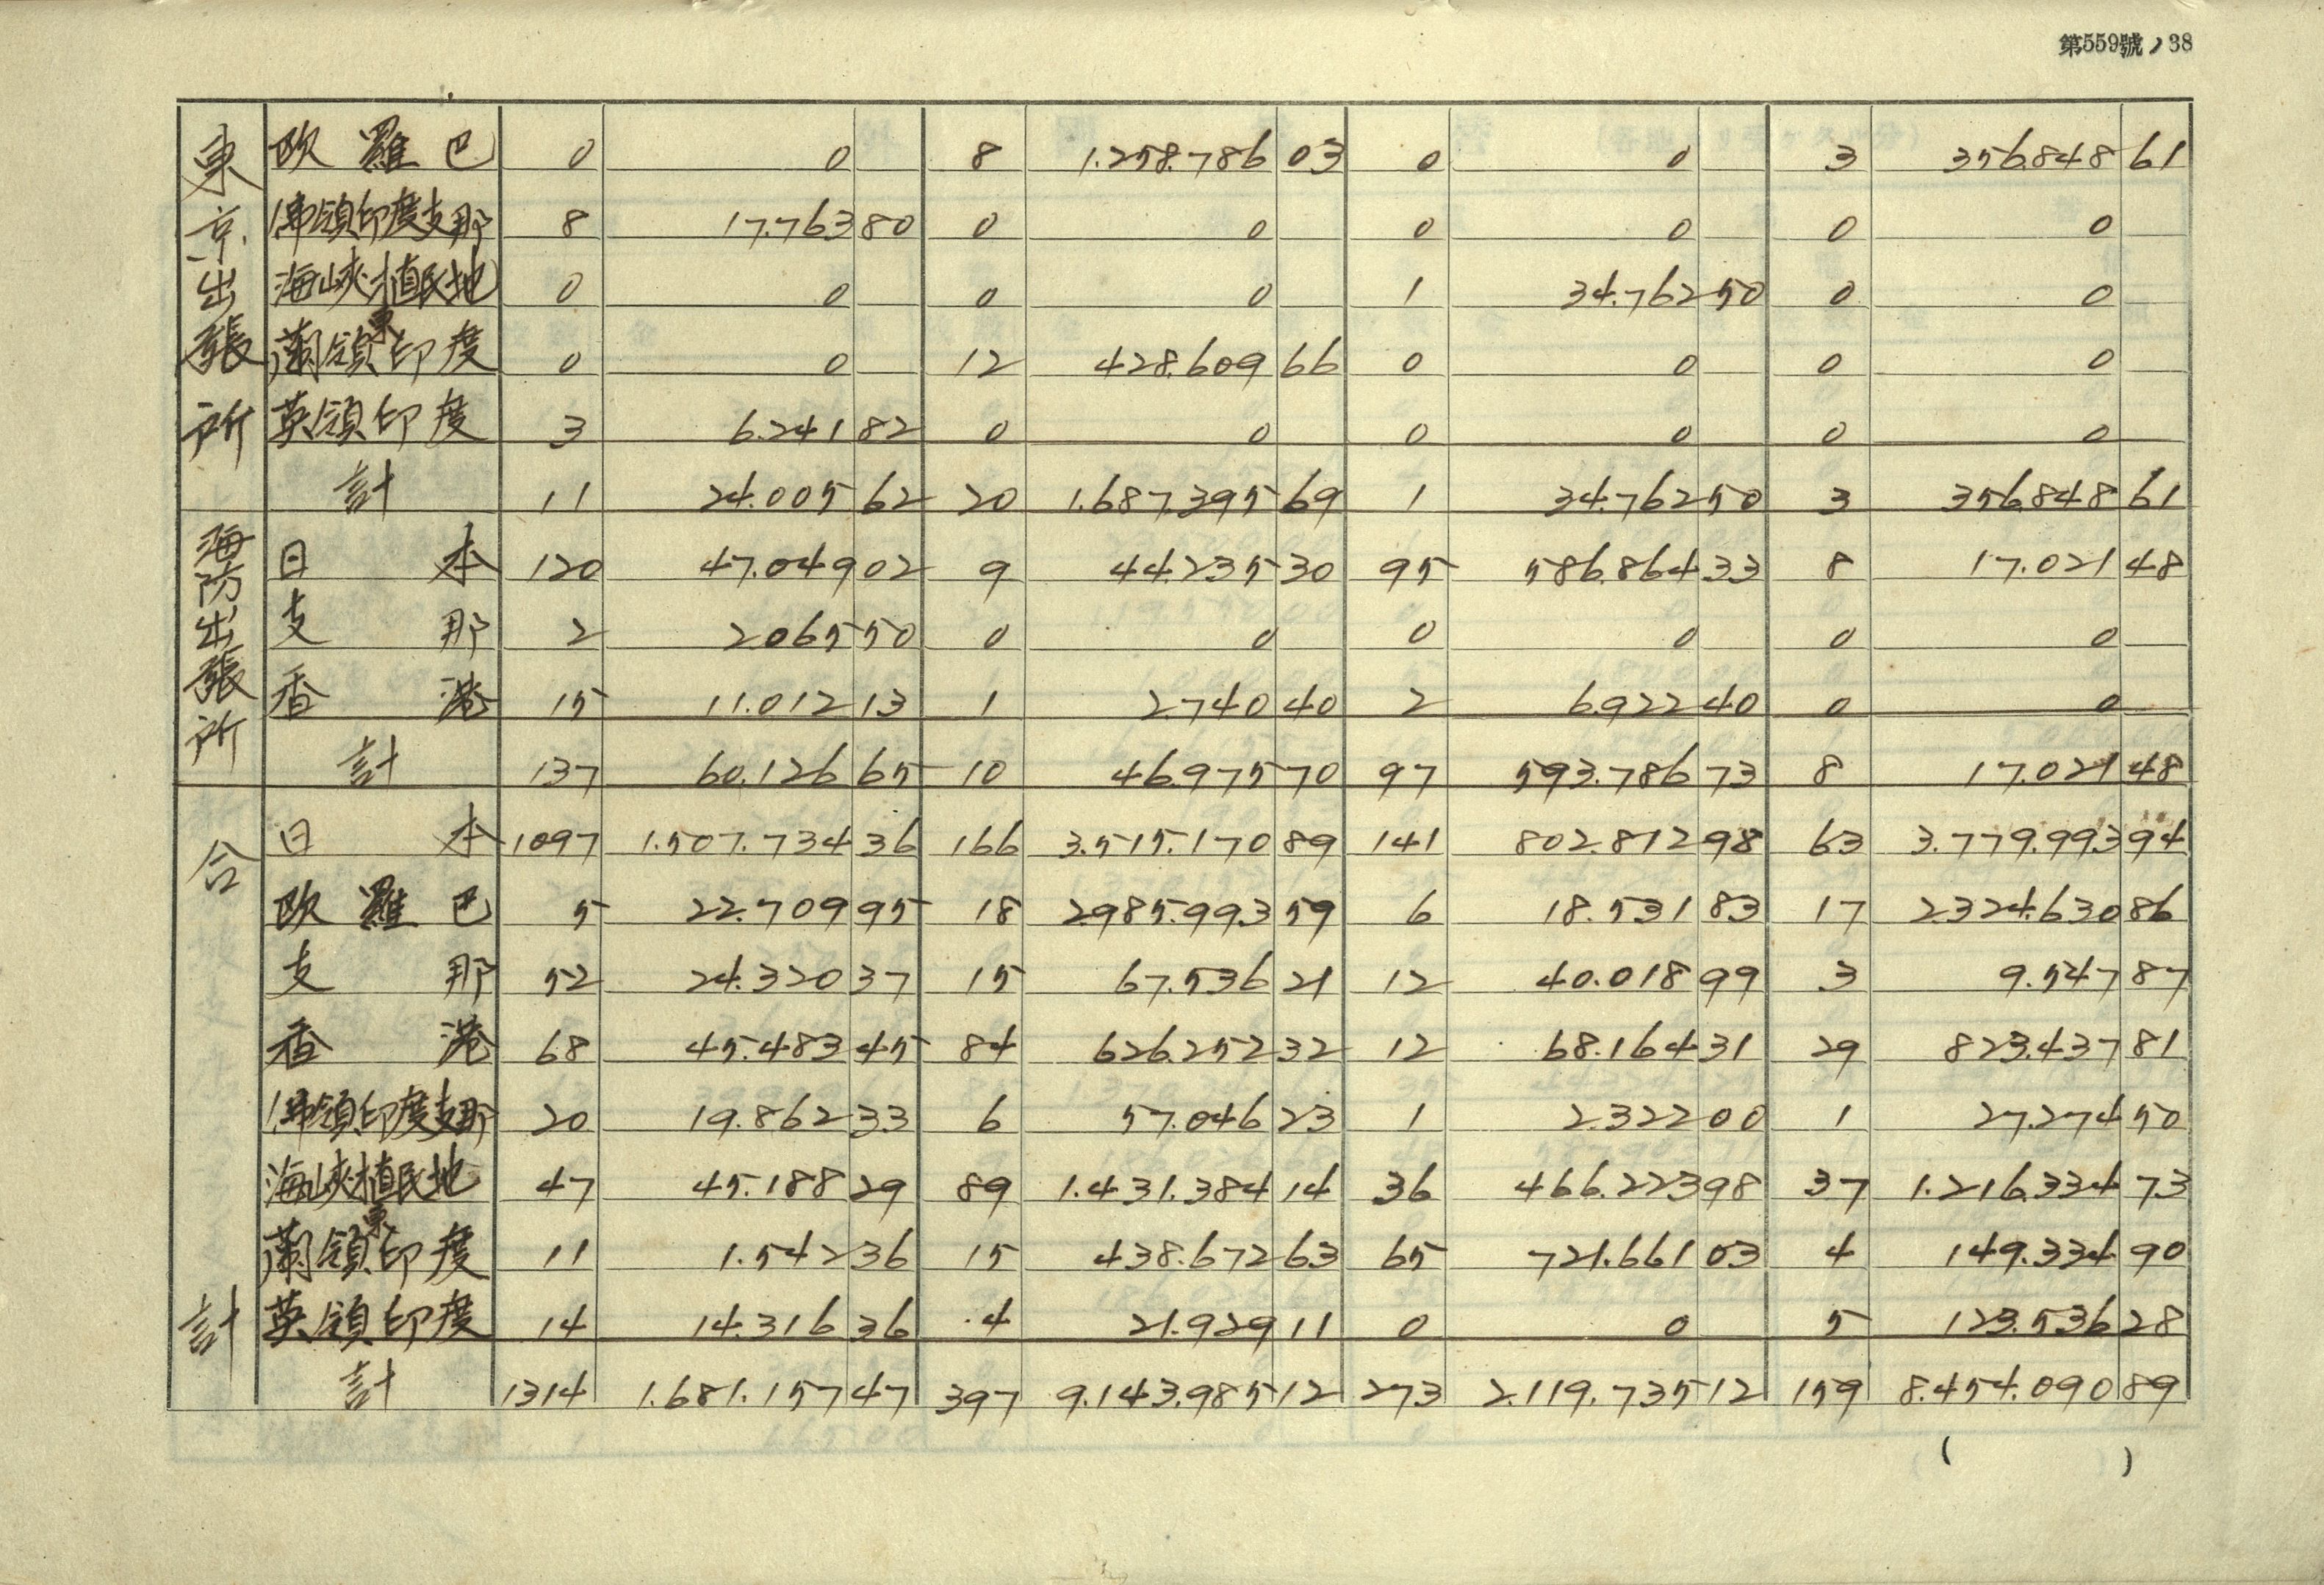 第559號ノ38
東京出張所
歐羅巴 0 0 8 1.258.786 03 0 0 3 356.848 61
佛領印度支那 8 17.763 80 0 0 0 0 0 0
海峽植民地 0 0 0 0 1 34.762 50 0 0
蘭領東印度 0 0 12 428.609 66 0 0 0 0
英領印度 3 6.241 82 0 0 0 0 0 0
計 11 24.005 62 20 1.687.395 69 1 34.762 50 3 356.848 61
海防出張所
日本 120 47.049 02 9 44.235 30 95 586.864 33 8 17.021 48
支那 2 2.065 50 0 0 0 0 0 0
香港 15 11.012 13 1 2.740 40 2 6.922 40 0 0
計 137 60.126 65 10 46.975 70 97 593.786 73 8 17.021 48
合計
日本 1097 1.507.734 36 166 3.515.170 89 141 802.812 98 63 3.779.993 94
歐羅巴 5 22.709 95 18 2.985.993 59 6 18.531 83 17 2.324.630 86
支那 52 24.320 37 15 67.536 21 12 40.018 99 3 9.547 87
香港 68 45.483 45 84 626.252 32 12 68.164 31 29 823.437 81
佛領印度支那 20 19.862 33 6 57.046 23 1 2.322 00 1 27.274 50
海峽植民地 47 45.188 29 89 1.431.384 14 36 466.223 98 37 1.216.334 73
蘭領東印度 11 1.542 36 15 438.672 63 65 721.661 03 4 149.334 90
英領印度 14 14.316 36 4 21.929 11 0 0 5 123.536 28
計 1314 1.681.157 47 397 9.143.985 12 273 2.119.735 12 159 8.454.090 89
( )